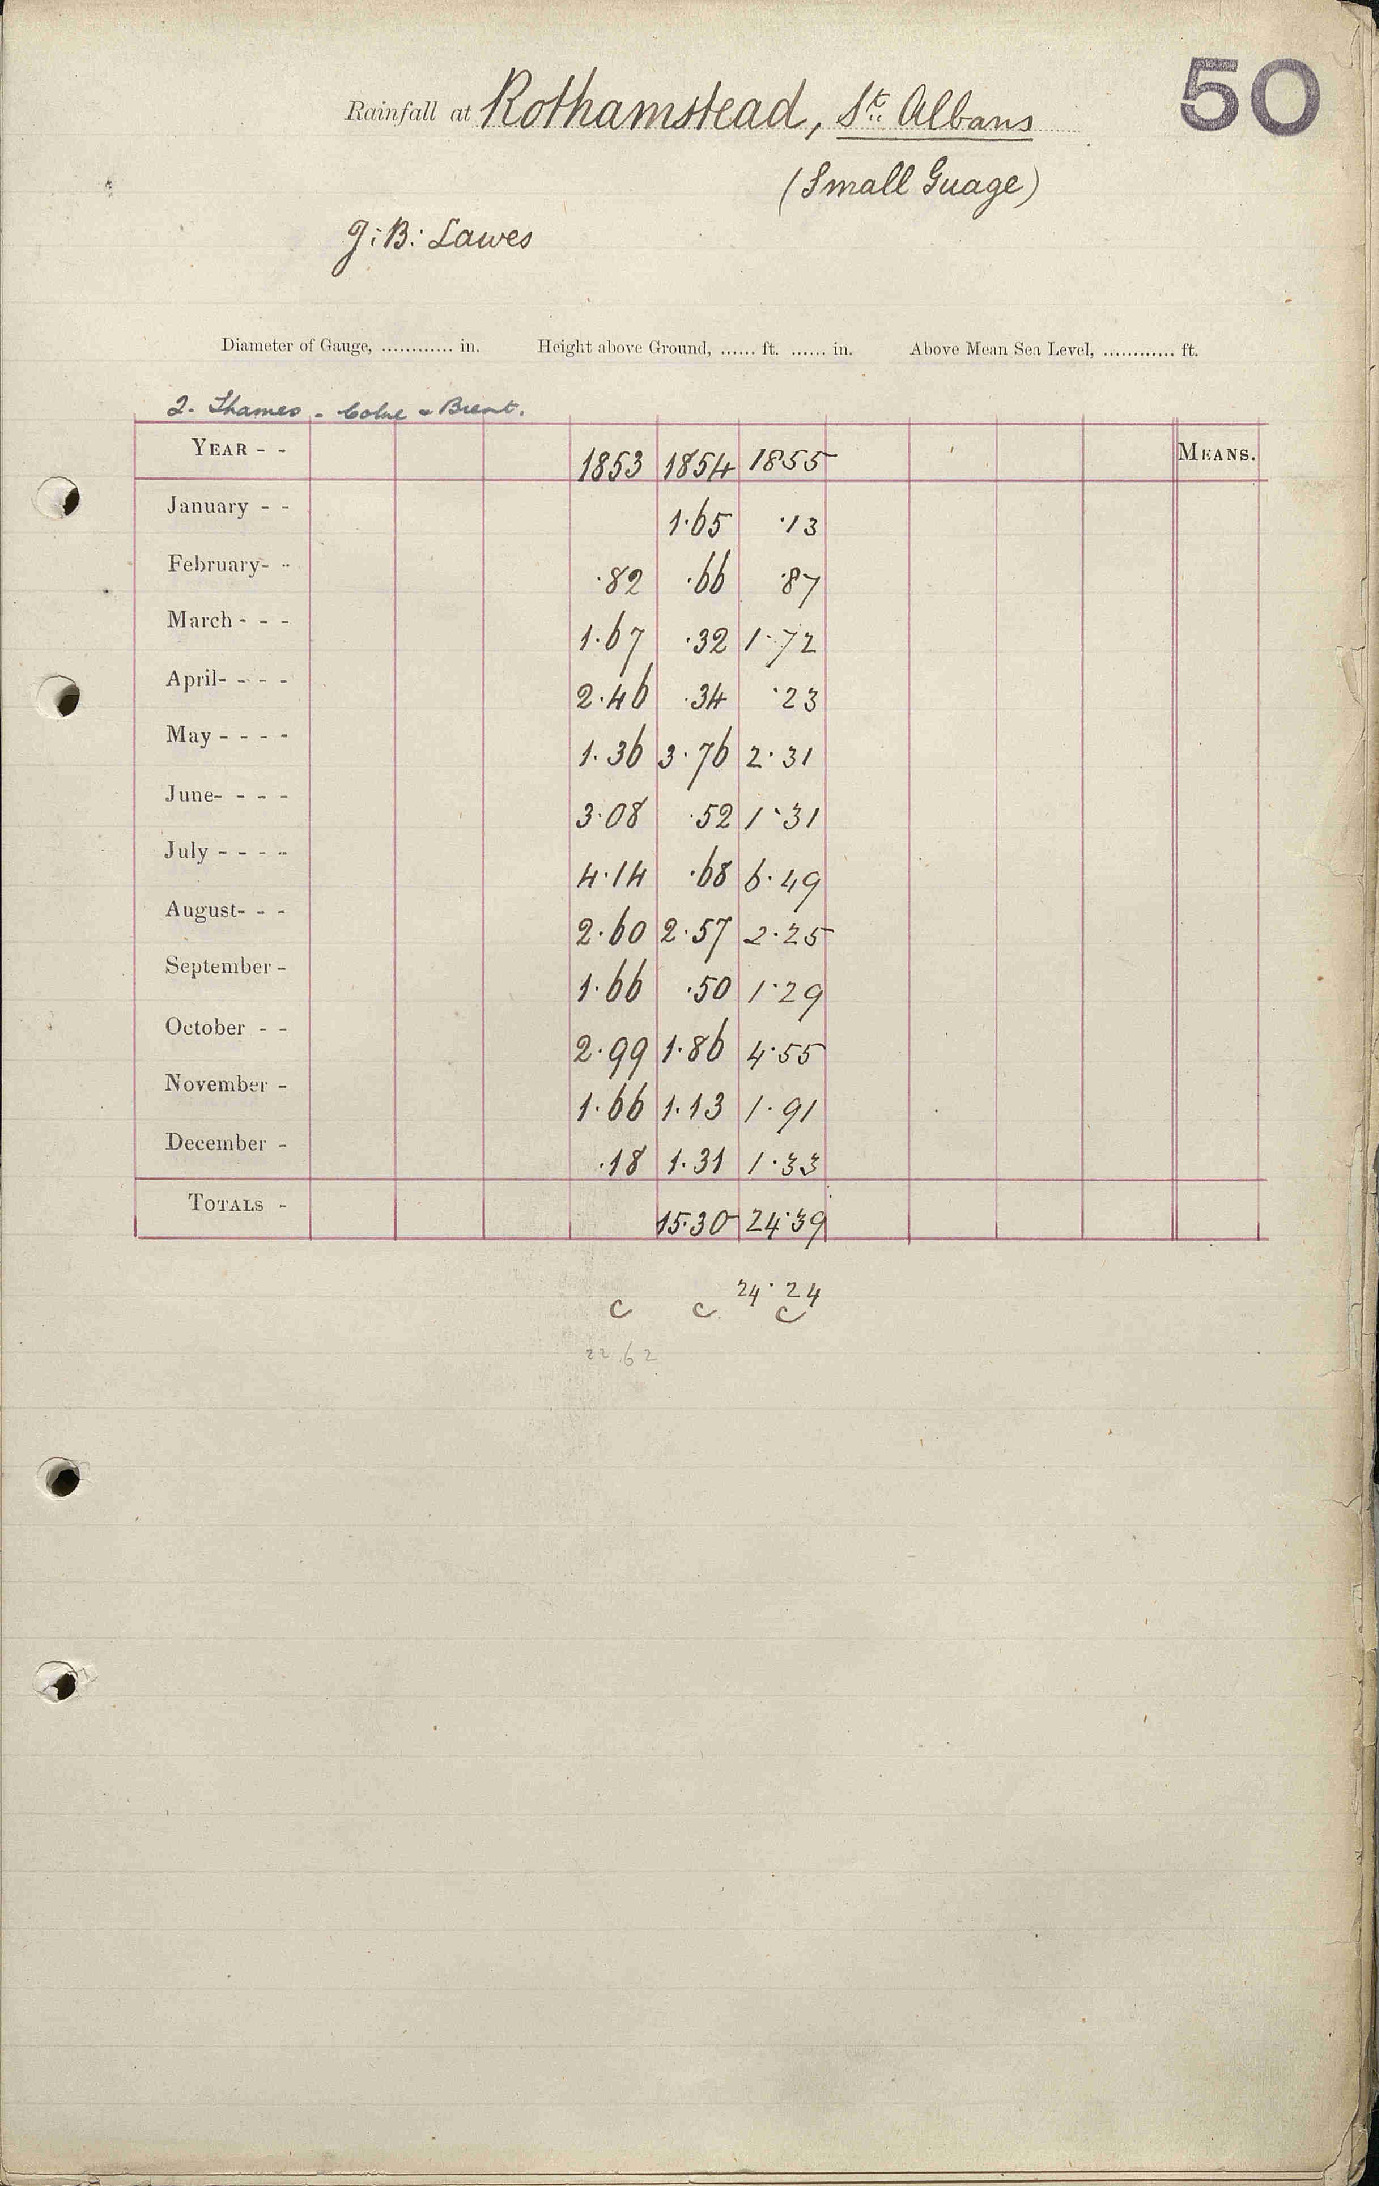 50
Rainfall at Rothamstead, St. Albans
(Small Guage)
J: B: Lawes
Diameter of Gauge, ............ in. Height above Ground, ...... ft. ...... in. Above Mean Sea Level, ............ ft.
2. Thames - Colne & Brent.
YEAR - - 1853 1854 1855 MEANS.
January - - 1.65 .13
February- - .82 .66 .87
March - - - 1.67 .32 1.72
April- - - - 2.46 .34 .23
May - - - - 1.36 3.76 2.31
June- - - - 3.08 .52 1.31
July - - - - 4.14 .68 6.49
August- - - 2.60 2.57 2.25
September - 1.66 .50 1.29
October - - 2.99 1.86 4.55
November - 1.66 1.13 1.91
December - .18 1.31 1.33
TOTALS - 15.30 24.39
24.24
c c c
22.62